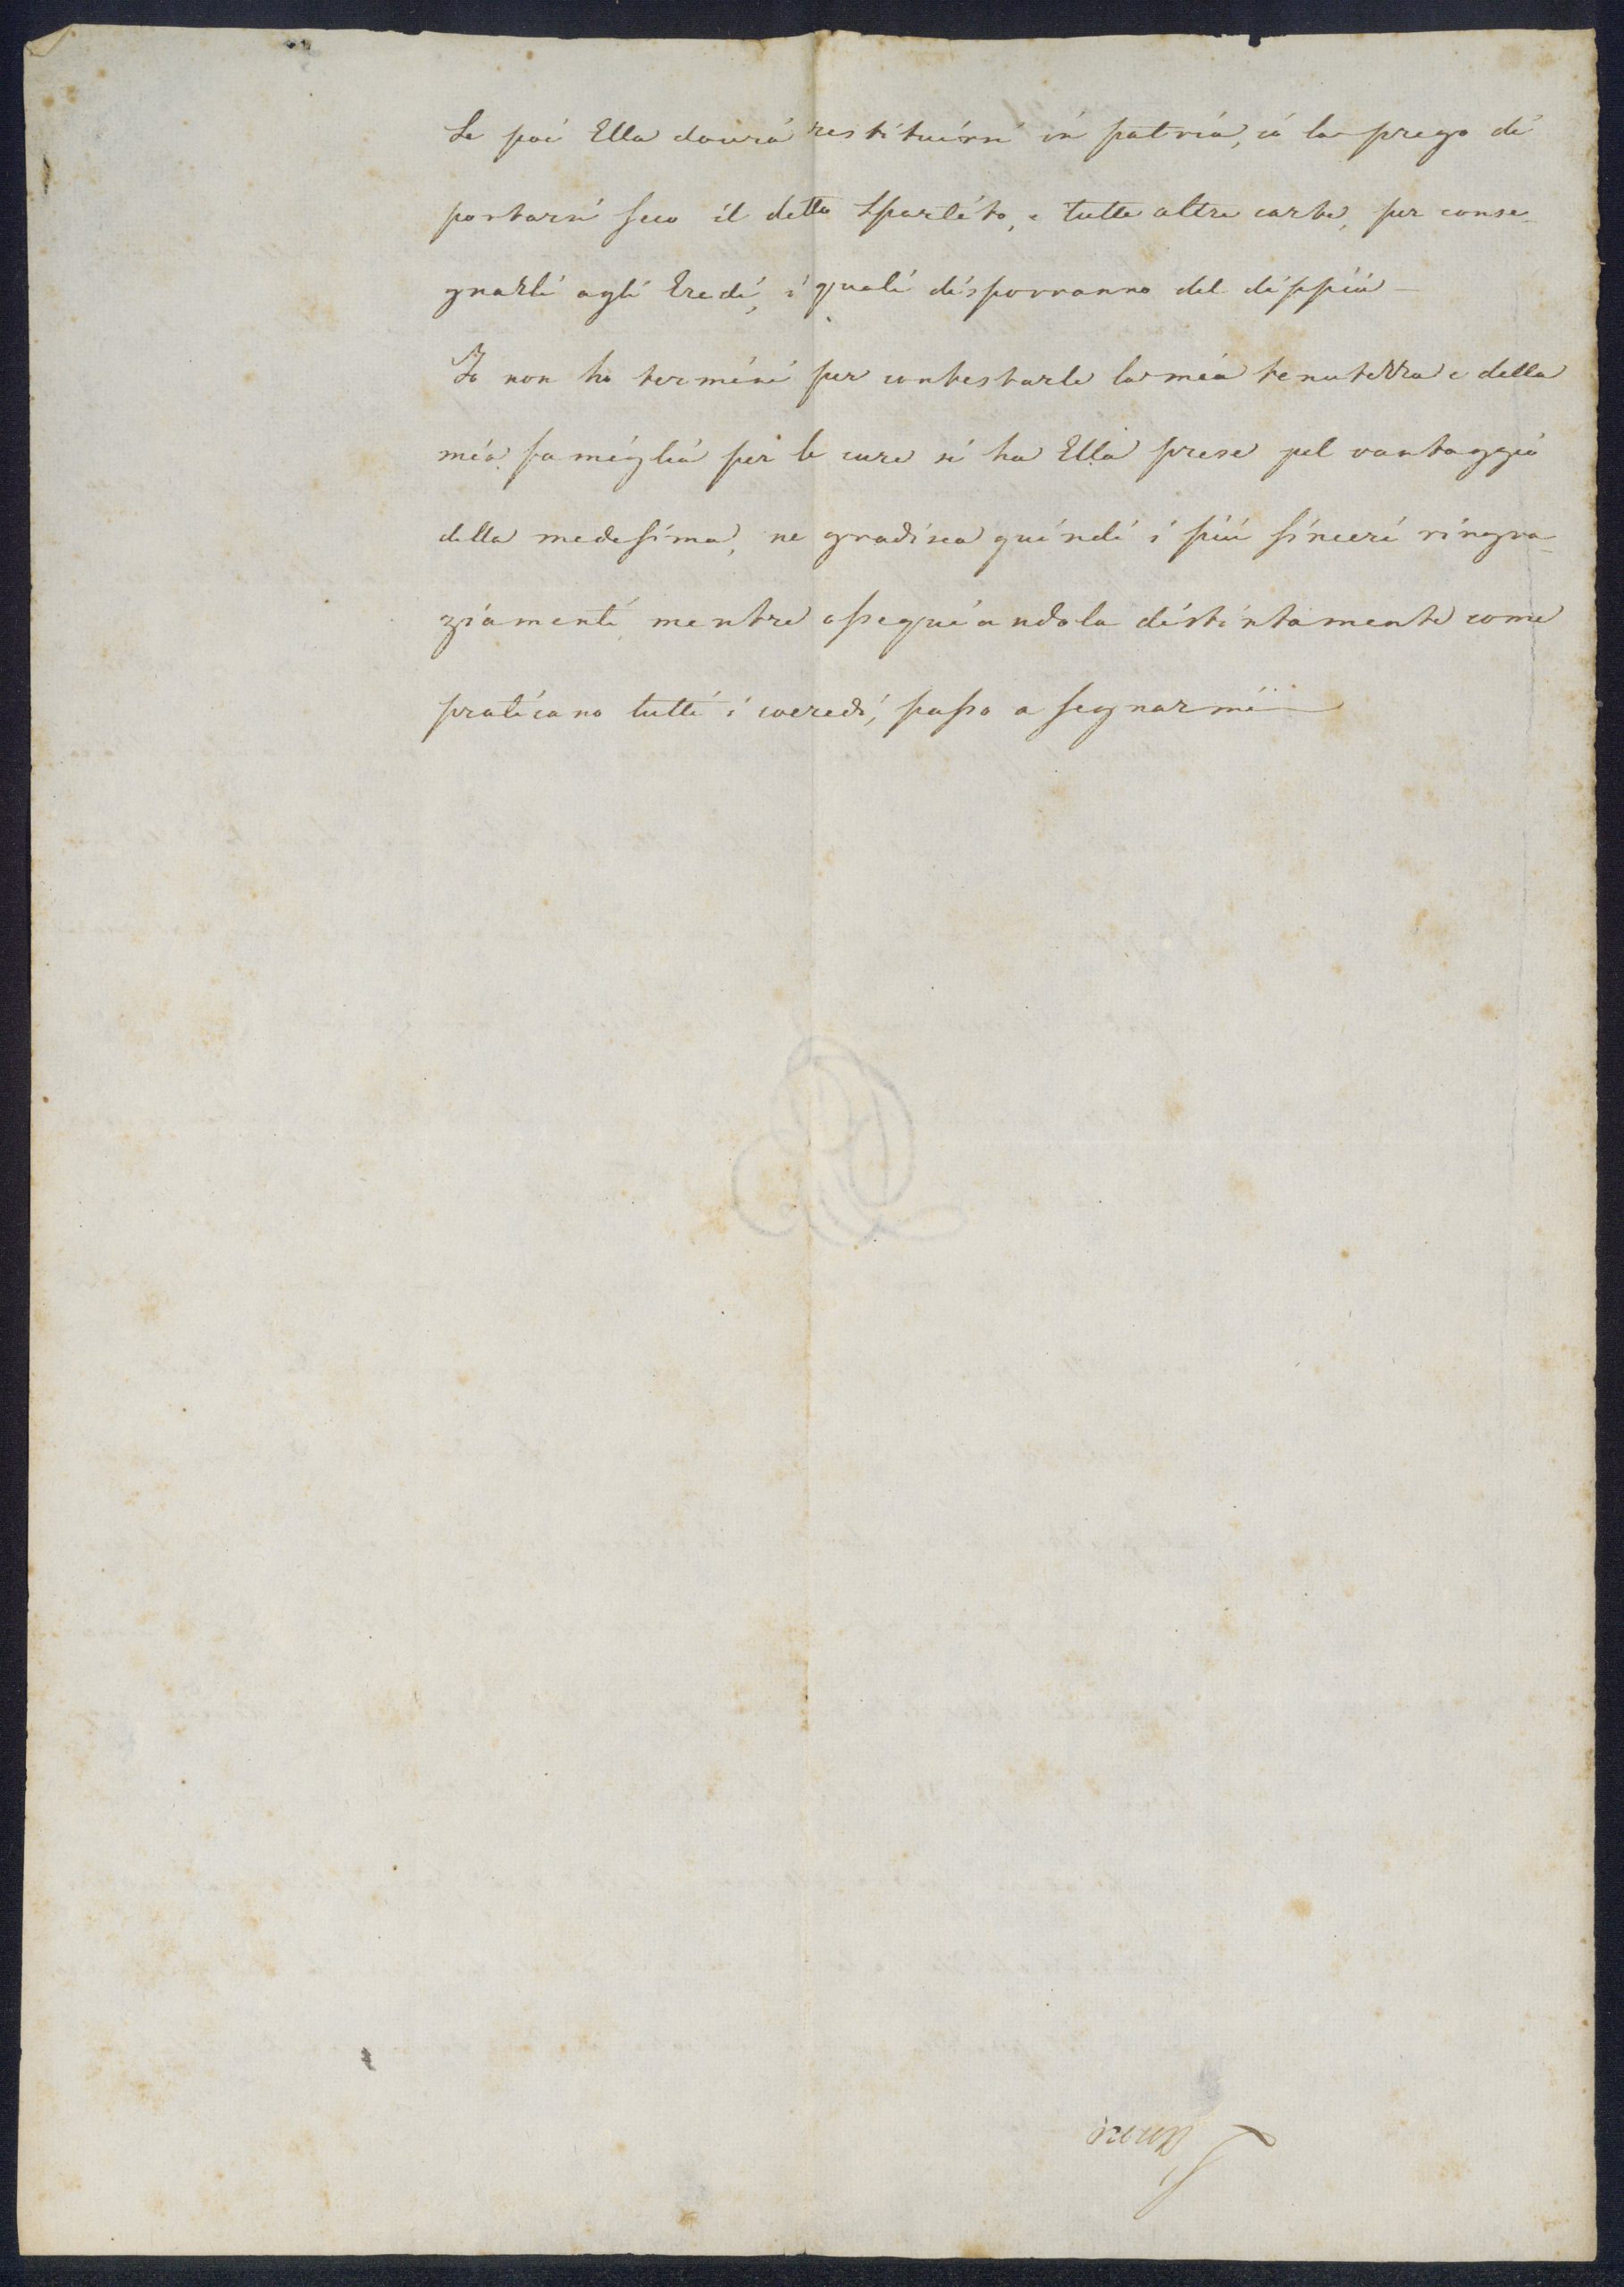 Se poi Ella dovrà restituirsi in patria, io la prego di
portarsi seco il detto Spartito, e tutte altre carte, per conse-
gnarli agli Eredi, i quali disporranno del dippiù -
Io non ho termini per contestarle la mia tenutezza e della
mia famiglia per le cure si ha Ella prese pel vantaggio
della medesima, ne gradisca quindi i più sinceri ringra-
ziamenti, mentre ossequiandola distintamente come
praticano tutti i coeredi, passo a segnarmi -